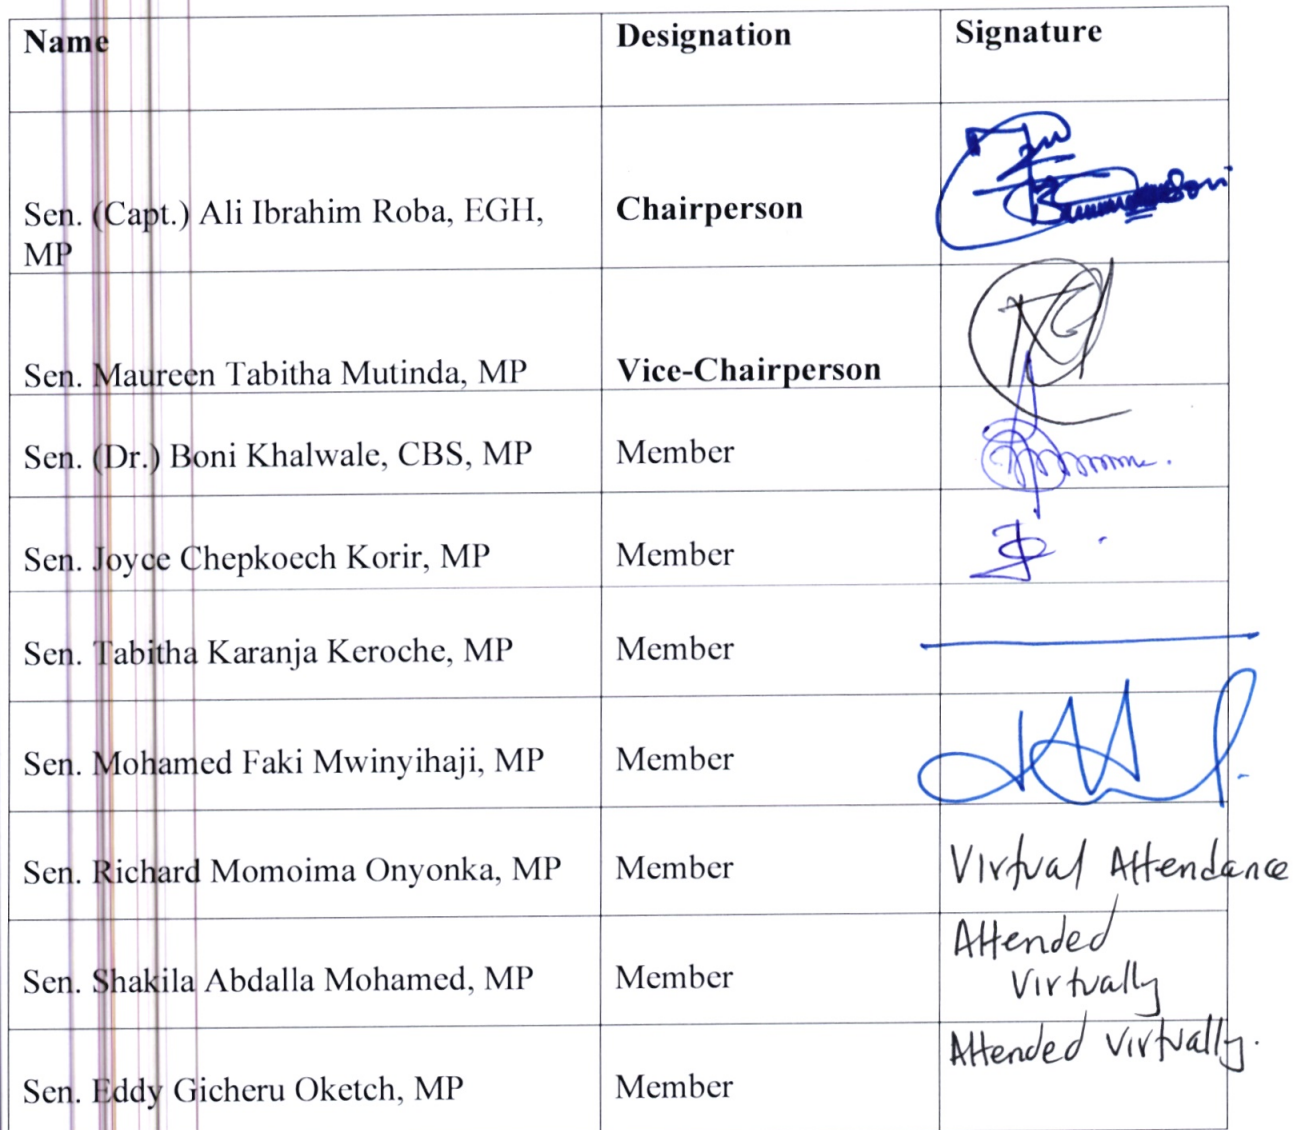 Name Designation Signature
Sen. (Capt.) Ali Ibrahim Roba, EGH, Chairperson
MP
Sen. Maureen Tabitha Mutinda, MP Vice-Chairperson
Sen. (Dr.) Boni Khalwale, CBS, MP Member
Sen. Joyce Chepkoech Korir, MP Member
Sen. Tabitha Karanja Keroche, MP Member
Sen. Mohamed Faki Mwinyihaji, MP Member
Sen. Richard Momoima Onyonka, MP Member Virtual Attendance
Sen. Shakila Abdalla Mohamed, MP Member Attended
Virtually
Sen. Eddy Gicheru Oketch, MP Member Attended Virtually.